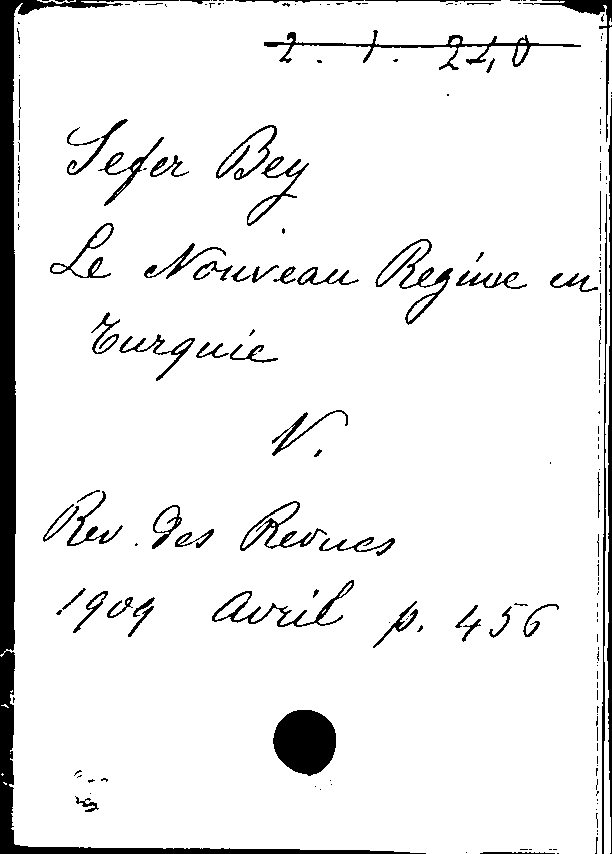 2. 1. 240
Sefer Bey
Le Nouveau Regime en
Turquie
V.
Rev. des Revues
1909 Avril p. 456